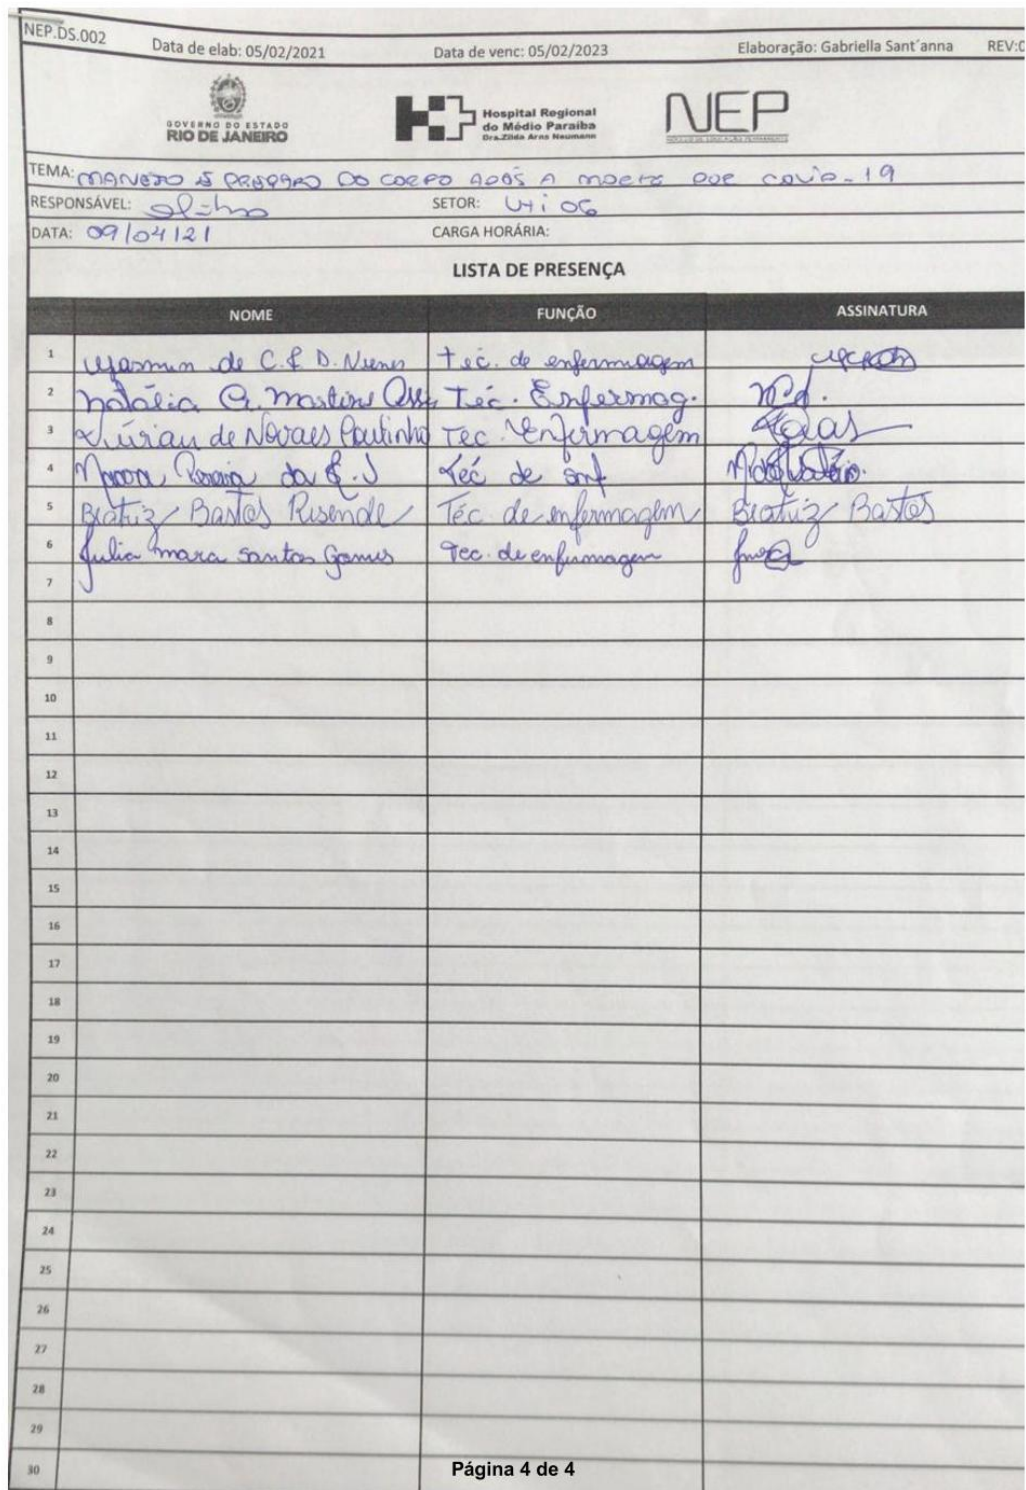 NEP.DS.002 Data de elab: 05/02/2021 Data de venc: 05/02/2023 Elaboração: Gabriella Sant´anna REV:0
GOVERNO DO ESTADO
RIO DE JANEIRO
Hospital Regional
do Médio Paraíba
Dra. Zilda Arns Neumann
NEP
NÚCLEO DE EDUCAÇÃO PERMANENTE
TEMA: MANEJO E PREPARO DO CORPO APÓS A MORTE POR COVID-19
RESPONSÁVEL: SETOR: UTI 06
DATA: 09/04/21 CARGA HORÁRIA:
LISTA DE PRESENÇA
NOME FUNÇÃO ASSINATURA
1 Yasmin de C. L D. Nunes Tec. de enfermagem
2 Natália G. Martins Téc. Enfermag.
3 de Novaes Paulinho Tec. Enfermagem
4 Pereira da Téc de enf
5 Beatriz Bastos Resende Téc. de enfermagem Beatriz Bastos
6 Julia mara santos Gomes Tec. de enfermagem
7
8
9
10
11
12
13
14
15
16
17
18
19
20
21
22
23
24
25
26
27
28
29
30
Página 4 de 4